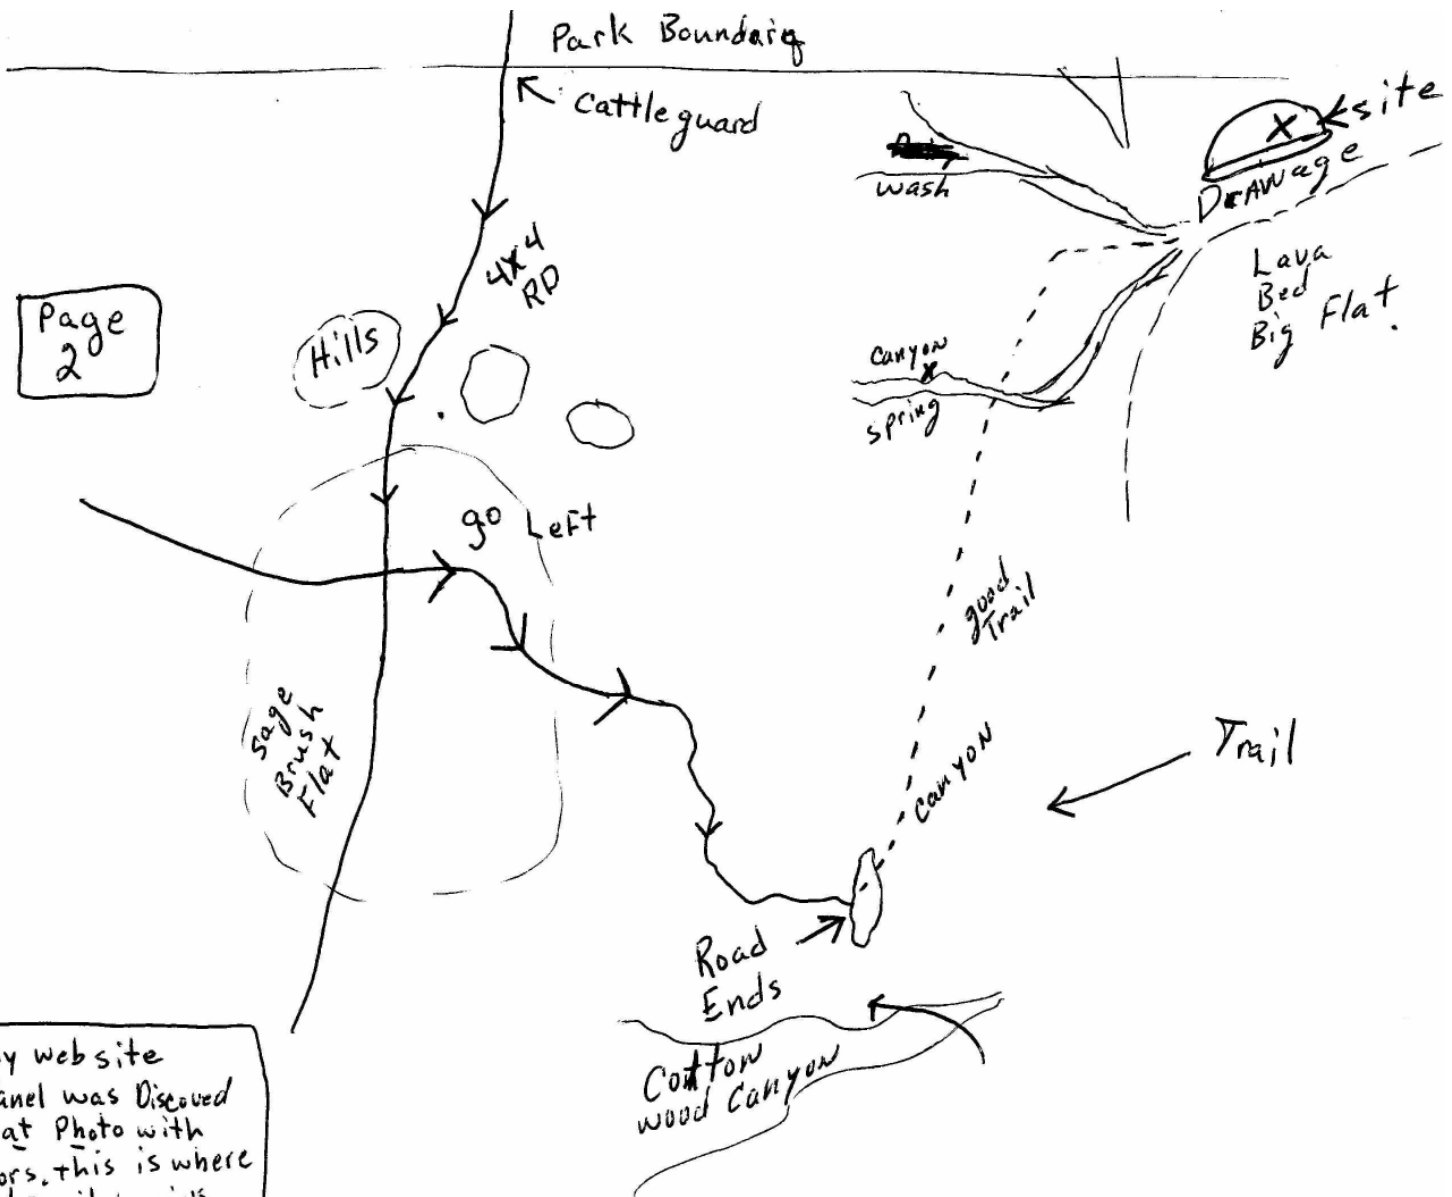 Park Boundary
Cattleguard
site
wash
Drawage
4x4
RD
Lava
Bed
Big Flat.
Page
2
Hills
Canyon
X
spring
go Left
good
Trail
Sage
Brush
Flat
Trail
Canyon
Road
Ends
Cotton
wood Canyon
website
anel was Discoued
at Photo with
ors. this is where